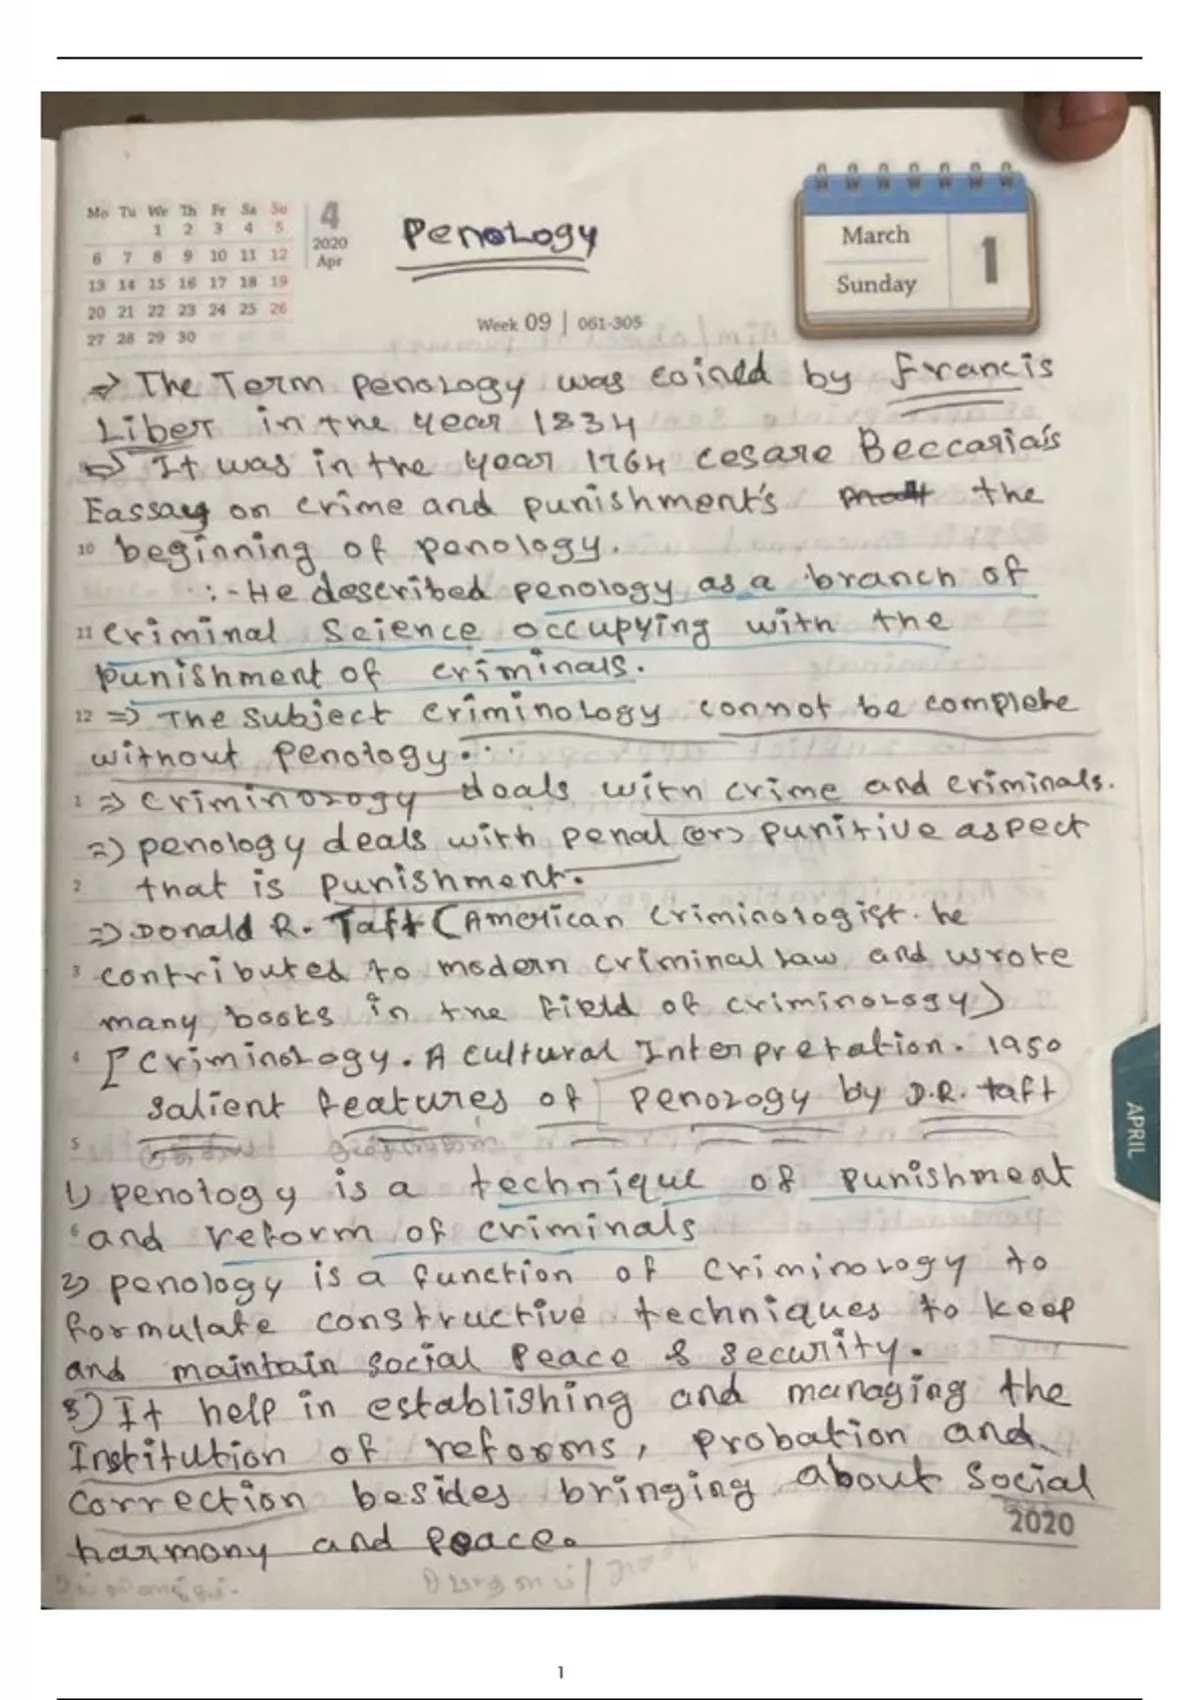 Mo Tu We Th Fr Sa Su
1 2 3 4 5
6 7 8 9 10 11 12
13 14 15 16 17 18 19
20 21 22 23 24 25 26
27 28 29 30
4
2020
Apr
Penology
March
Sunday
1
Week 09 | 061-305
=> The Term penology was coined by Francis
Liber in the year 1834
=> It was in the year 1764 cesare Beccaria's
Eassay on crime and punishment's the
10 beginning of penology.
:- He described penology as a branch of
11 criminal Science occupying with the
punishment of criminals.
12 => The Subject criminology connot be complete
without penology...
1 => criminology deals with crime and criminals.
=> penology deals with penal (or) punitive aspect
2 that is punishment.
=> Donald R. Taft (American criminologist. he
3 contributed to modern criminal law and wrote
many books in the field of criminology)
4 [criminology. A cultural Interpretation. 1950
salient features of penology by D.R. taft
5
1) penology is a technique of punishment
6 and reform of criminals
2) penology is a function of criminology to
formulate constructive techniques to keep
and maintain social peace & security.
3) It help in establishing and managing the
Institution of reforms, probation and
correction besides bringing about Social
harmony and peace.
2020
APRIL
1